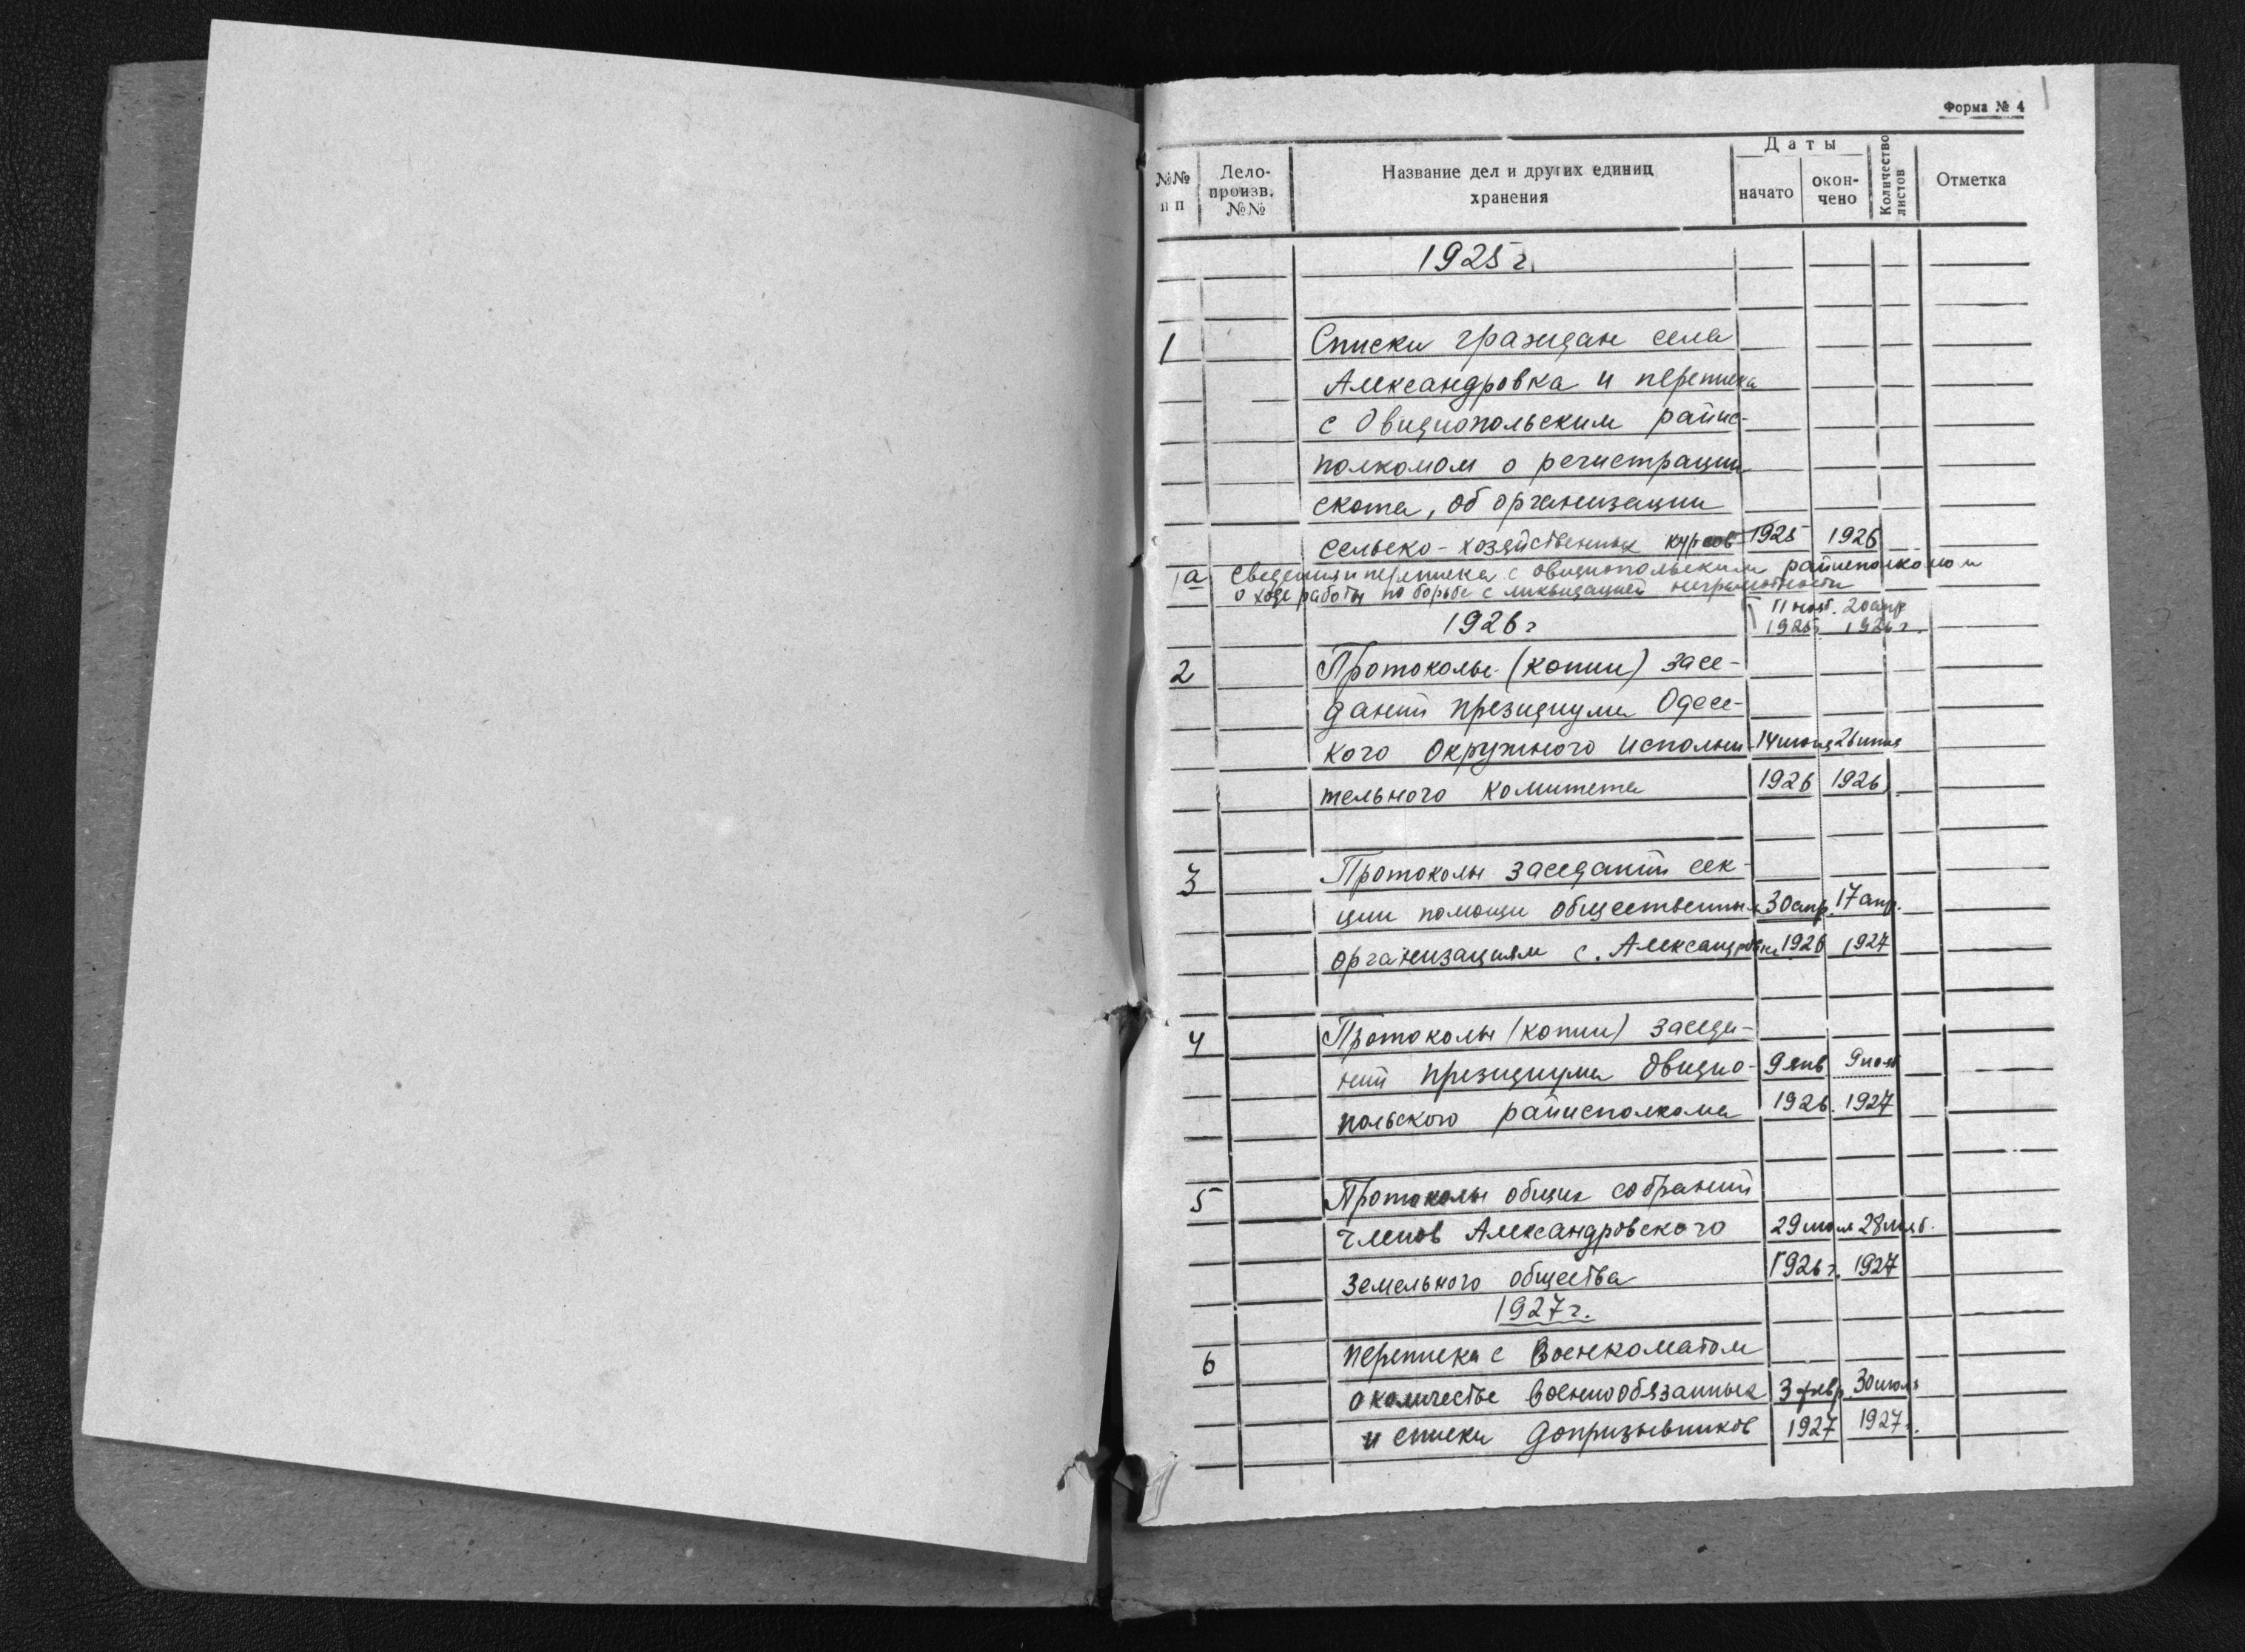 1
Форма № 4
№№ п п
Дело-произв. №№
Название дел и других единиц хранения
Даты
начато
окон-чено
Количество листов
Отметка
1925 г.
1 Списки граждан села
Александровка и переписка
с Овидиопольским райис-
полкомом о регистрации
скота, об организации
сельско-хозяйственных курсов 1925 1926
1а Сведения и переписка с Овидиопольским райисполкомом
о ходе работы по борьбе с ликвидацией неграмотности
11 нояб. 20 апр
1926 г 1925г. 1926 г.
2 Протоколы (копии) засе-
даний президиума Одесс-
кого Окружного исполни-
14 июня
тельного комитета 1926 1926
3 Протоколы заседаний сек-
ции помощи общественным 30 апр. 17 апр.
организациям с. Александровка 1926 1927
4 Протоколы (копии) заседа-
ний президиума Овидио- 9 янв
польского райисполкома 1926. 1927
5 Протоколы общих собраний
членов Александровского 29
земельного общества 1926 г. 1927
1927 г.
6 Переписка с Военкоматом
о количестве военнообязанных 3 февр. 30 июля
и списки допризывников 1927 1927 г.